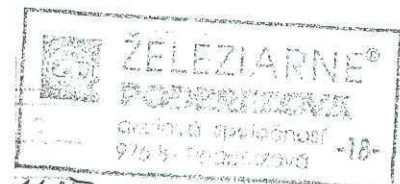 ŽELEZIARNE®
PODBREZOVÁ
akciová spoločnosť
976 81 Podbrezová -18-